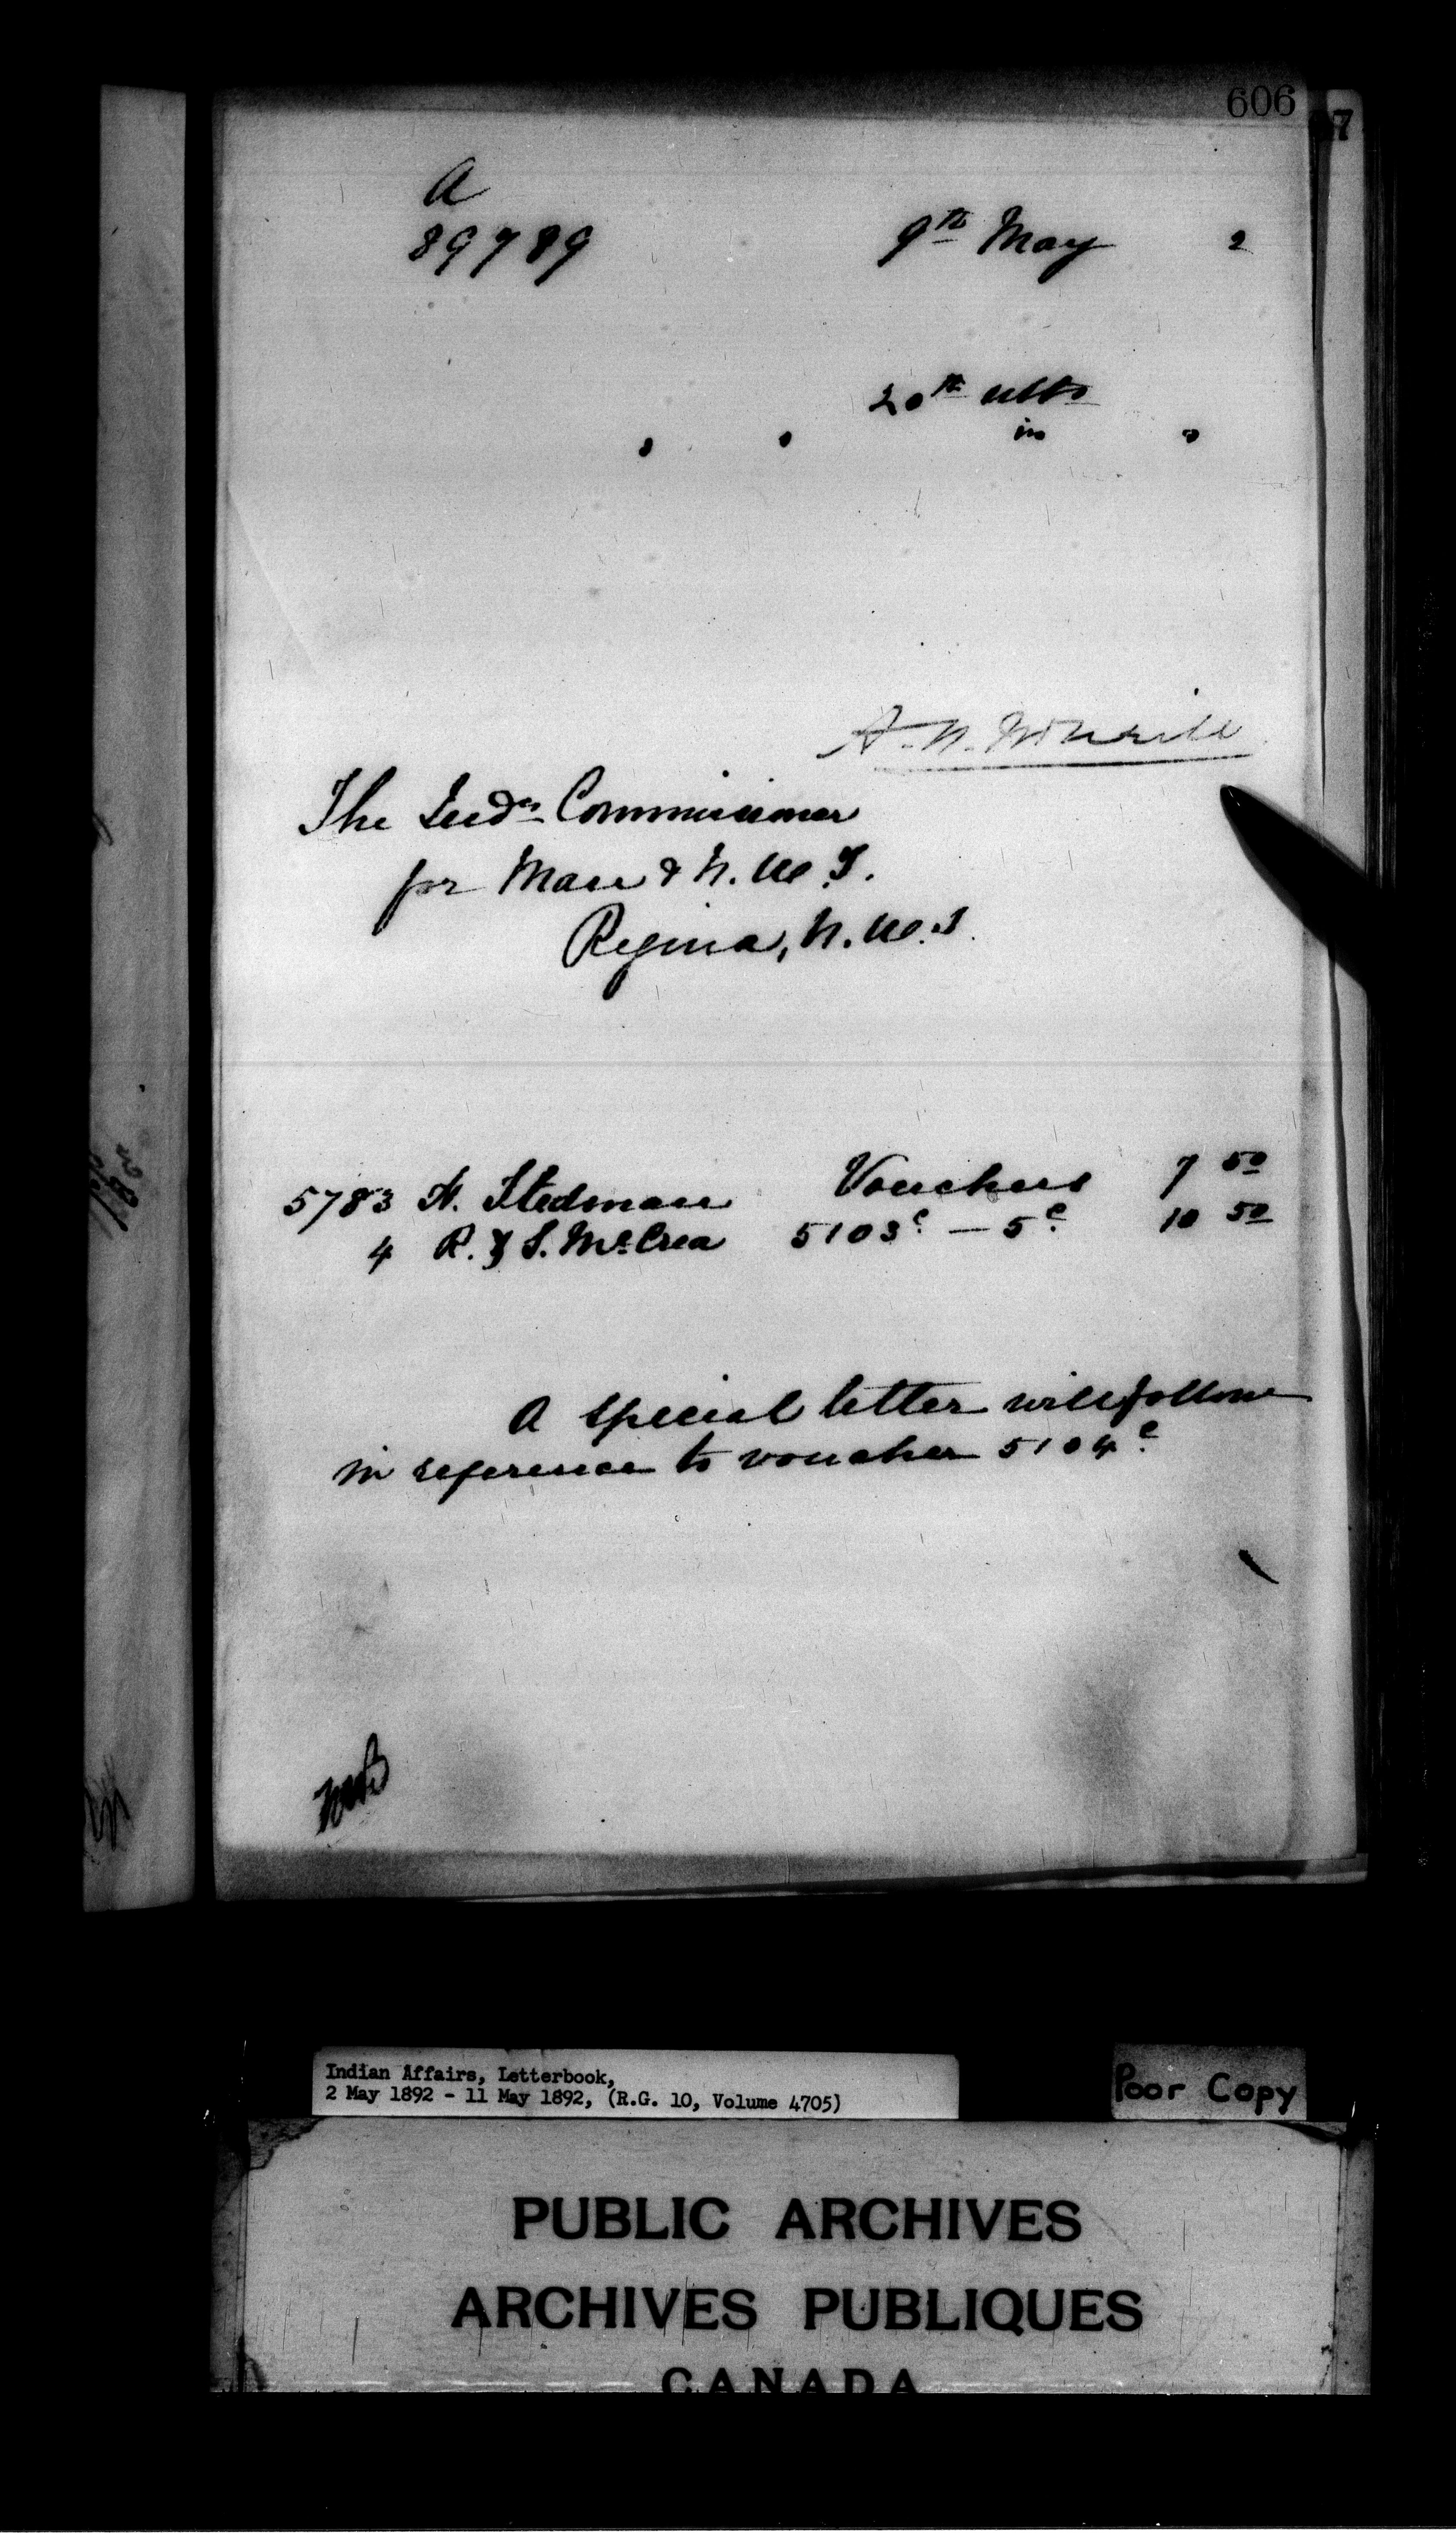 606
7
A
89789
9th May 2
20th ulto
in
The Ind'n Commissioner
for Man & N.W.T.
Regina, N.W.T.
Vouchers
5783 A. Stedman 7 50
4 R. & S. McCrea 5103c — 5c 10 50
A special letter will follow
in reference to voucher 5104c
Indian Affairs, Letterbook,
2 May 1892 - 11 May 1892, (R.G. 10, Volume 4705)
Poor Copy
PUBLIC ARCHIVES
ARCHIVES PUBLIQUES
CANADA